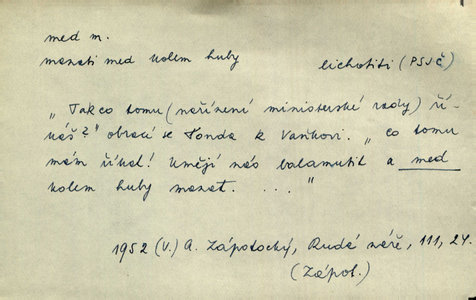 med m.
mazati med kolem huby
lichotiti (PSJČ)
„Takco tomu (nařízení ministerské rady) ří-
káš?" obrací se Tonda k Vaňkovi. „co tomu
mám říkat! Umějí nás balamutit a med
kolem huby mazat. . . . "
1952 (V.) A. Zápotocký, Rudá záře, 111, 24.
(Zápot.)